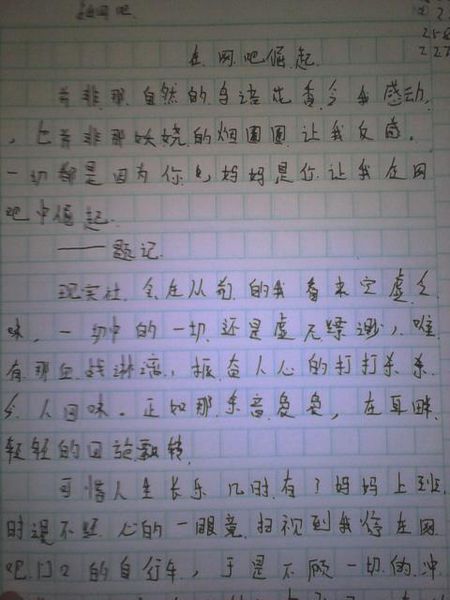 在网吧崛起
若非那自然的鸟语花香令我感动,
,也若非那妖娆的烟圈圈让我反感.
一切都是因为你,妈妈是你让我在网
吧中崛起.
——题记.
现实社会在从前的我看来空虚乏
味,一切中的一切还是虚无缥渺,唯
有那血战淋漓,振奋人心的打打杀杀
令人回味.正如那乐音袅袅,在耳畔
轻轻的回旋飘转
可惜人生长乐几时有?妈妈上班
时漫不经心的一眼竟扫视到我停在网
吧门口的自行车,于是不顾一切的冲